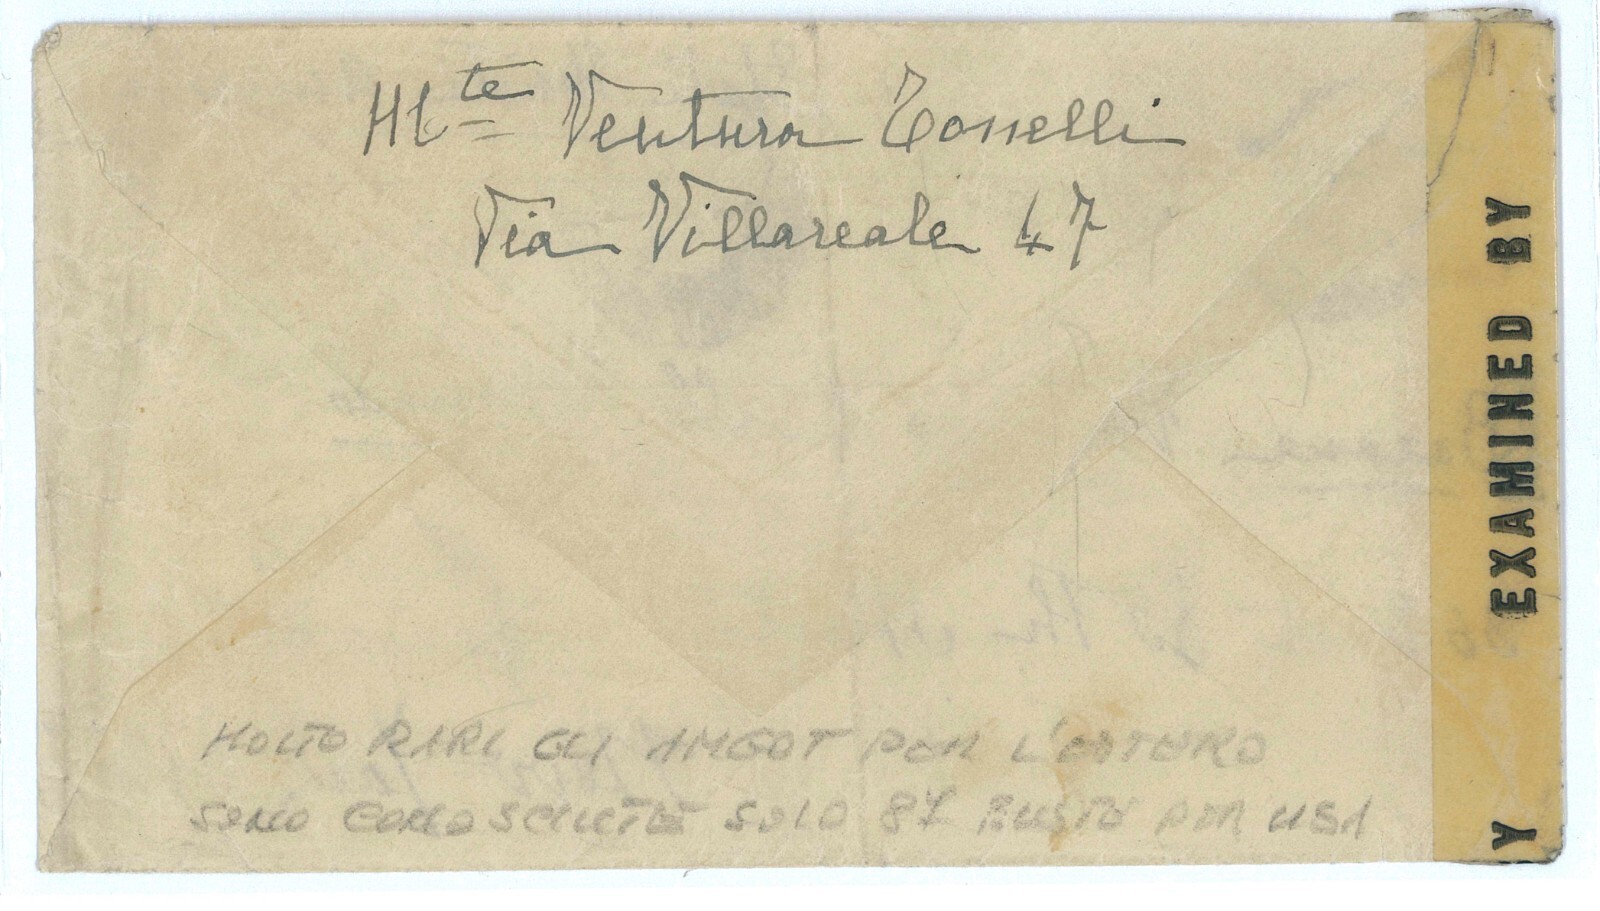 Mtte Ventura Tonelli
Via Villareale 47
EXAMINED BY
BY
MOLTO RARI GLI AMGOT PER L'ESTERO
SONO CONOSCIUTE SOLO 87 BUSTE PER USA